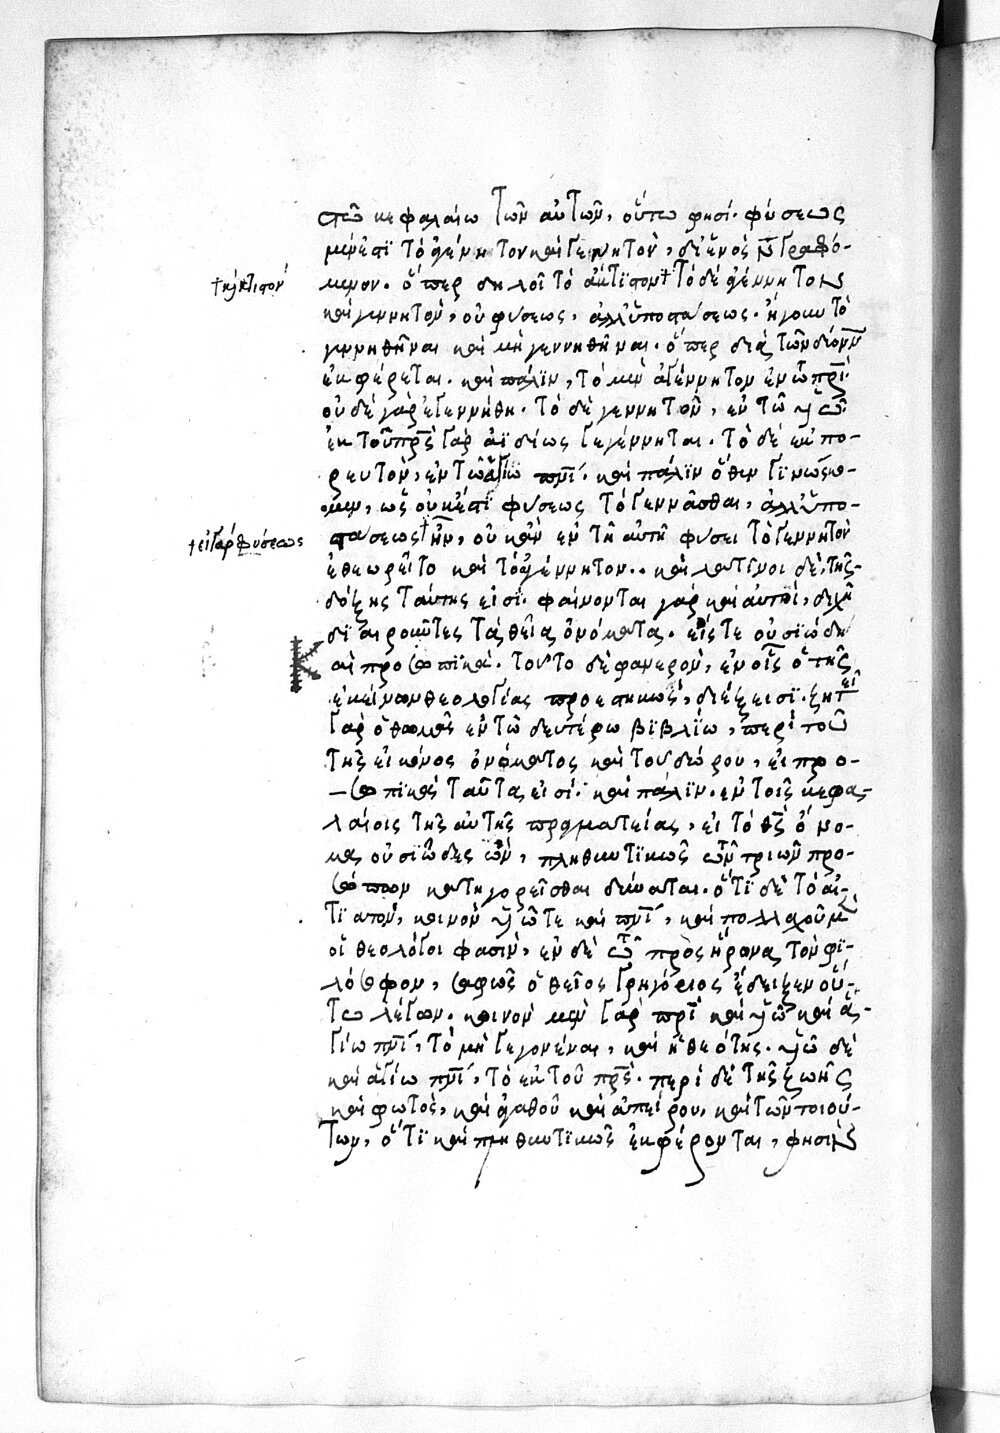 στῷ κεφαλαίῳ τῶν αὐτῶν, οὕτω φησί. φύσεως
μὲν ἐπὶ τὸ ἀγέννητον καὶ γεννητὸν, δι' ἑνὸς ν̄ γραφό-
μενον. ὅπερ δηλοῖ τὸ ἄκτϊστον † τὸ δὲ ἀγέννητον
†ἢ κτιστόν
καὶ γεννητὸν, οὐ φύσεως, ἀλλ' ὑποστάσεως. ἤγουν τὸ
γεννηθῆναι καὶ μὴ γεννηθῆναι. ὅπερ διὰ τῶν δύο νν
ἐκφέρεται. καὶ πάλϊν, τὸ μὲν ἀγέννητον ἐν τῷ πρι.
οὐδὲ γὰρ ἐγεννήθη. τὸ δὲ γεννητὸν, ἐν τῷ υἱῷ.
ἐκ τοῦ πρς γὰρ ἀϊδίως γεγέννηται. τὸ δὲ ἐκπο-
ρευτὸν, ἐν τῷ ἁγίῳ πνι. καὶ πάλϊν ὅθεν γϊνώσκο-
μεν, ὡς οὐκ ἐπὶ φύσεως τὸ γεννᾶσθαι, ἀλλ' ὑπο-
στάσεως † ἦν, οὐκ ἂν ἐν τῇ αὐτῇ φύσει τὸ γεννητὸν
†εἰ γὰρ φύσεως
ἐθεωρεῖτο καὶ τὸ ἀγέννητον.. καὶ λατῖνοι δὲ, τῆς
δόξης ταύτης εἰσί. φαίνονται γὰρ καὶ αὐτοὶ, διχῆ
δϊαιροῦντες τὰ θεῖα ὀνόματα. εἴς τε οὐσϊώδη
Καὶ προσωπϊκά. τοῦτο δὲ φανερὸν, ἐν οἷς ὁ τῆς
ἐκείνων θεολογίας προεστηκὼς, διέξεισϊ. ζητεῖ
γὰρ ὁ θωμᾶς ἐν τῷ δευτέρω βϊβλίω, περὶ τοῦ
τῆς εἰκόνος ὀνόματος καὶ τοῦ δώρου, εἰ προ-
σωπϊκὰ ταῦτα εἰσί. καὶ πάλϊν. ἐν τοῖς κεφα-
λαίοις τῆς αὐτῆς πραγματείας, εἰ τὸ θς ὄνο-
μα οὐσϊῶδες ὂν, πληθυντϊκῶς τῶν τριῶν προ-
σώπων κατηγορεῖσθαι δύναται. ὅτϊ δὲ τὸ αἰ-
τϊατὸν, κοινὸν υἱῷ τε καὶ πνι, καὶ πολλαχοῦ μὲν
οἱ θεολόγοι φασὶν, ἐν δὲ τῷ πρὸς ἥρωνα τὸν φϊ-
λόσοφον, σαφῶς ὁ θεῖος γρηγόριος ἔδειξεν οὕ-
τω λέγων. κοινὸν μὲν γὰρ πρι καὶ υἱῷ καὶ ἁ-
γίω πνι, τὸ μὴ γεγονέναι, καὶ ἡ θεότης. υἱῷ δὲ
καὶ ἁγίω πνι, τὸ ἐκ τοῦ πρς. περὶ δὲ τῆς ζωῆς
καὶ φωτὸς, καὶ ἀγαθοῦ καὶ ἀπείρου, καὶ τῶν τοιού-
των, ὅτϊ καὶ πληθυντϊκῶς ἐκφέρονται, φησὶν